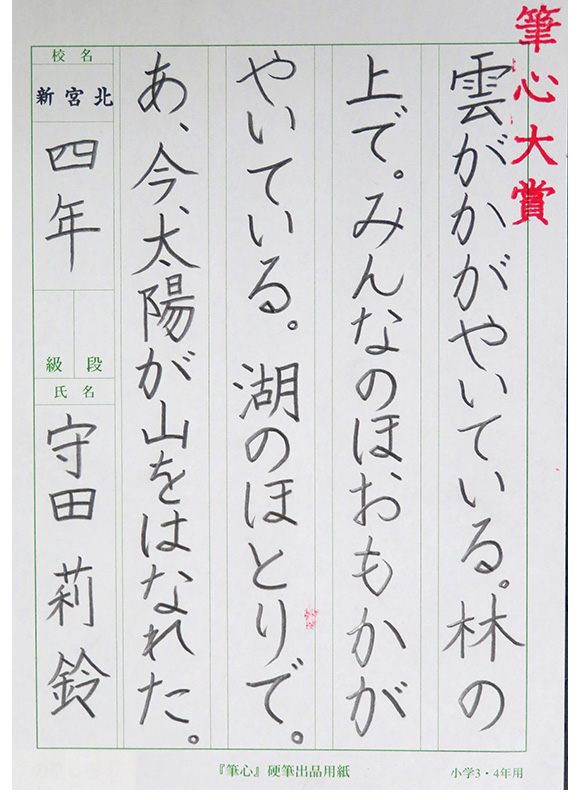 筆心大賞
雲がかがやいている。林の
上で。みんなのほおもかが
やいている。湖のほとりで。
あ、今、太陽が山をはなれた。
校名
新宮北
四年
段
級
氏名
守田莉鈴
『筆心』硬筆出品用紙
小学3・4年用